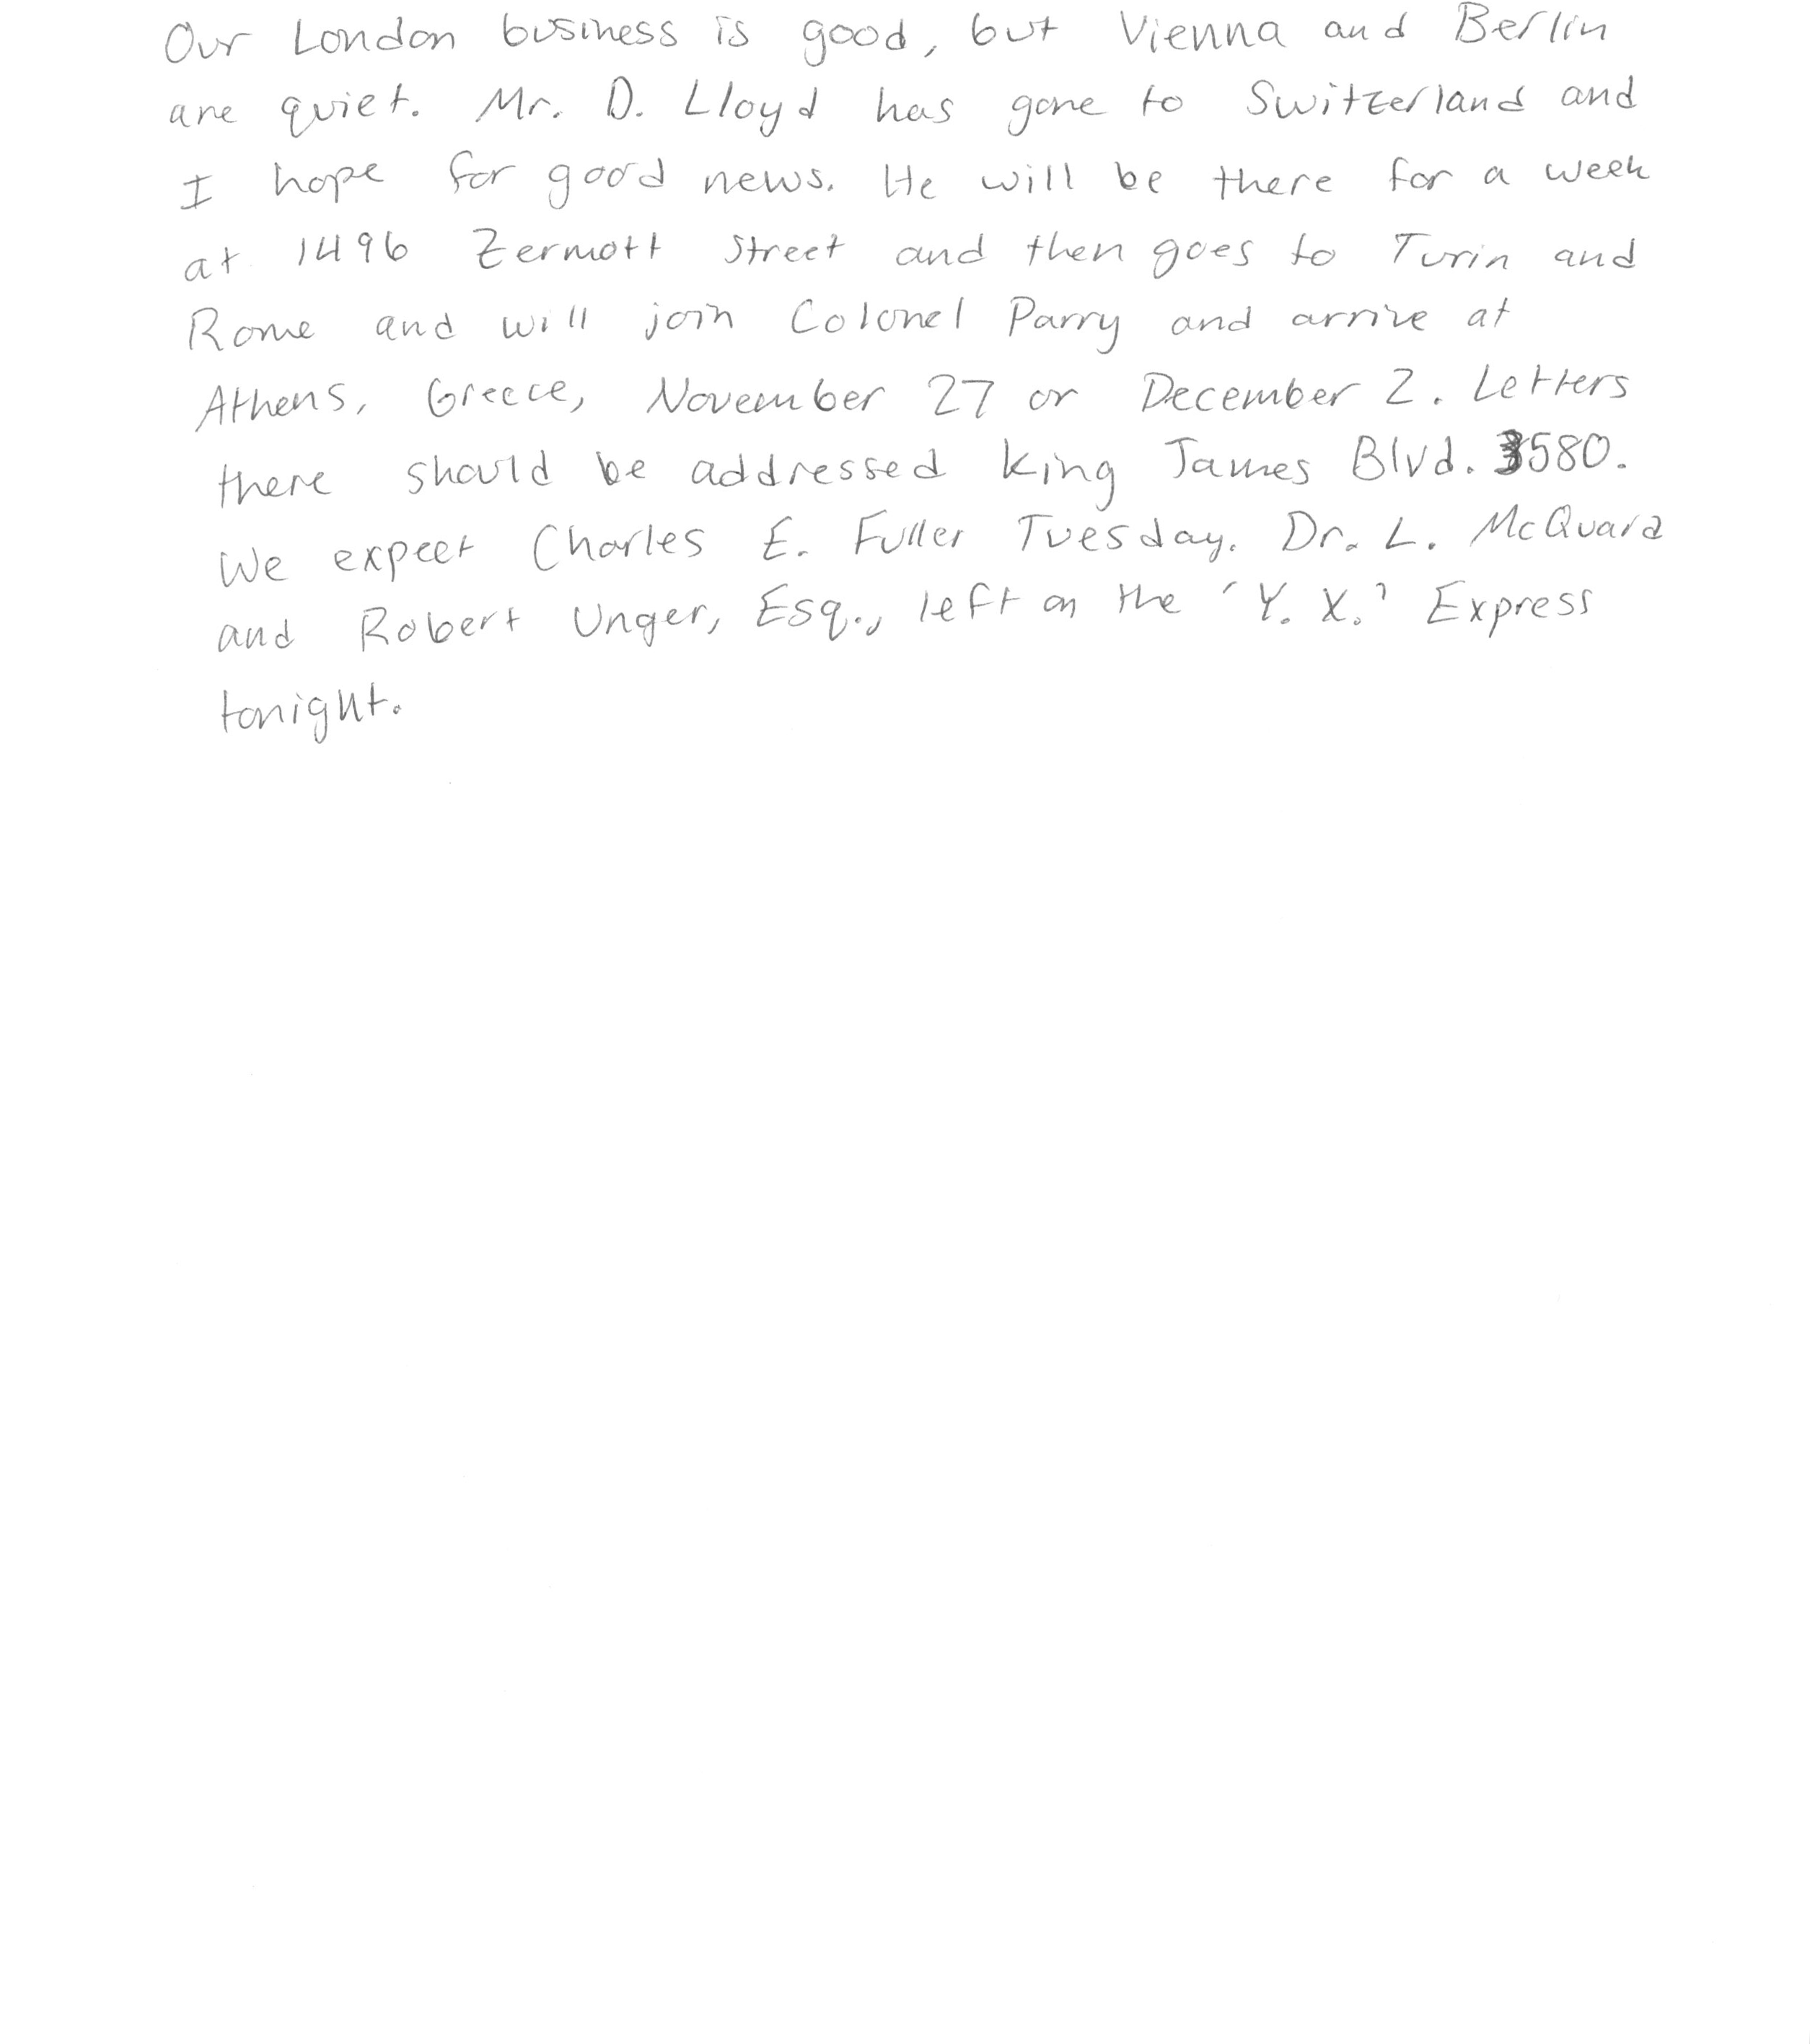 Our London business is good, but Vienna and Berlin
are quiet. Mr. D. Lloyd has gone to Switzerland and
I hope for good news. He will be there for a week
at 1496 Zermott Street and then goes to Turin and
Rome and will join Colonel Parry and arrive at
Athens, Greece, November 27 or December 2. Letters
there should be addressed King James Blvd. 3580.
We expect Charles E. Fuller Tuesday. Dr. L. McQuard
and Robert Unger, Esq., left on the 'Y. X.' Express
tonight.